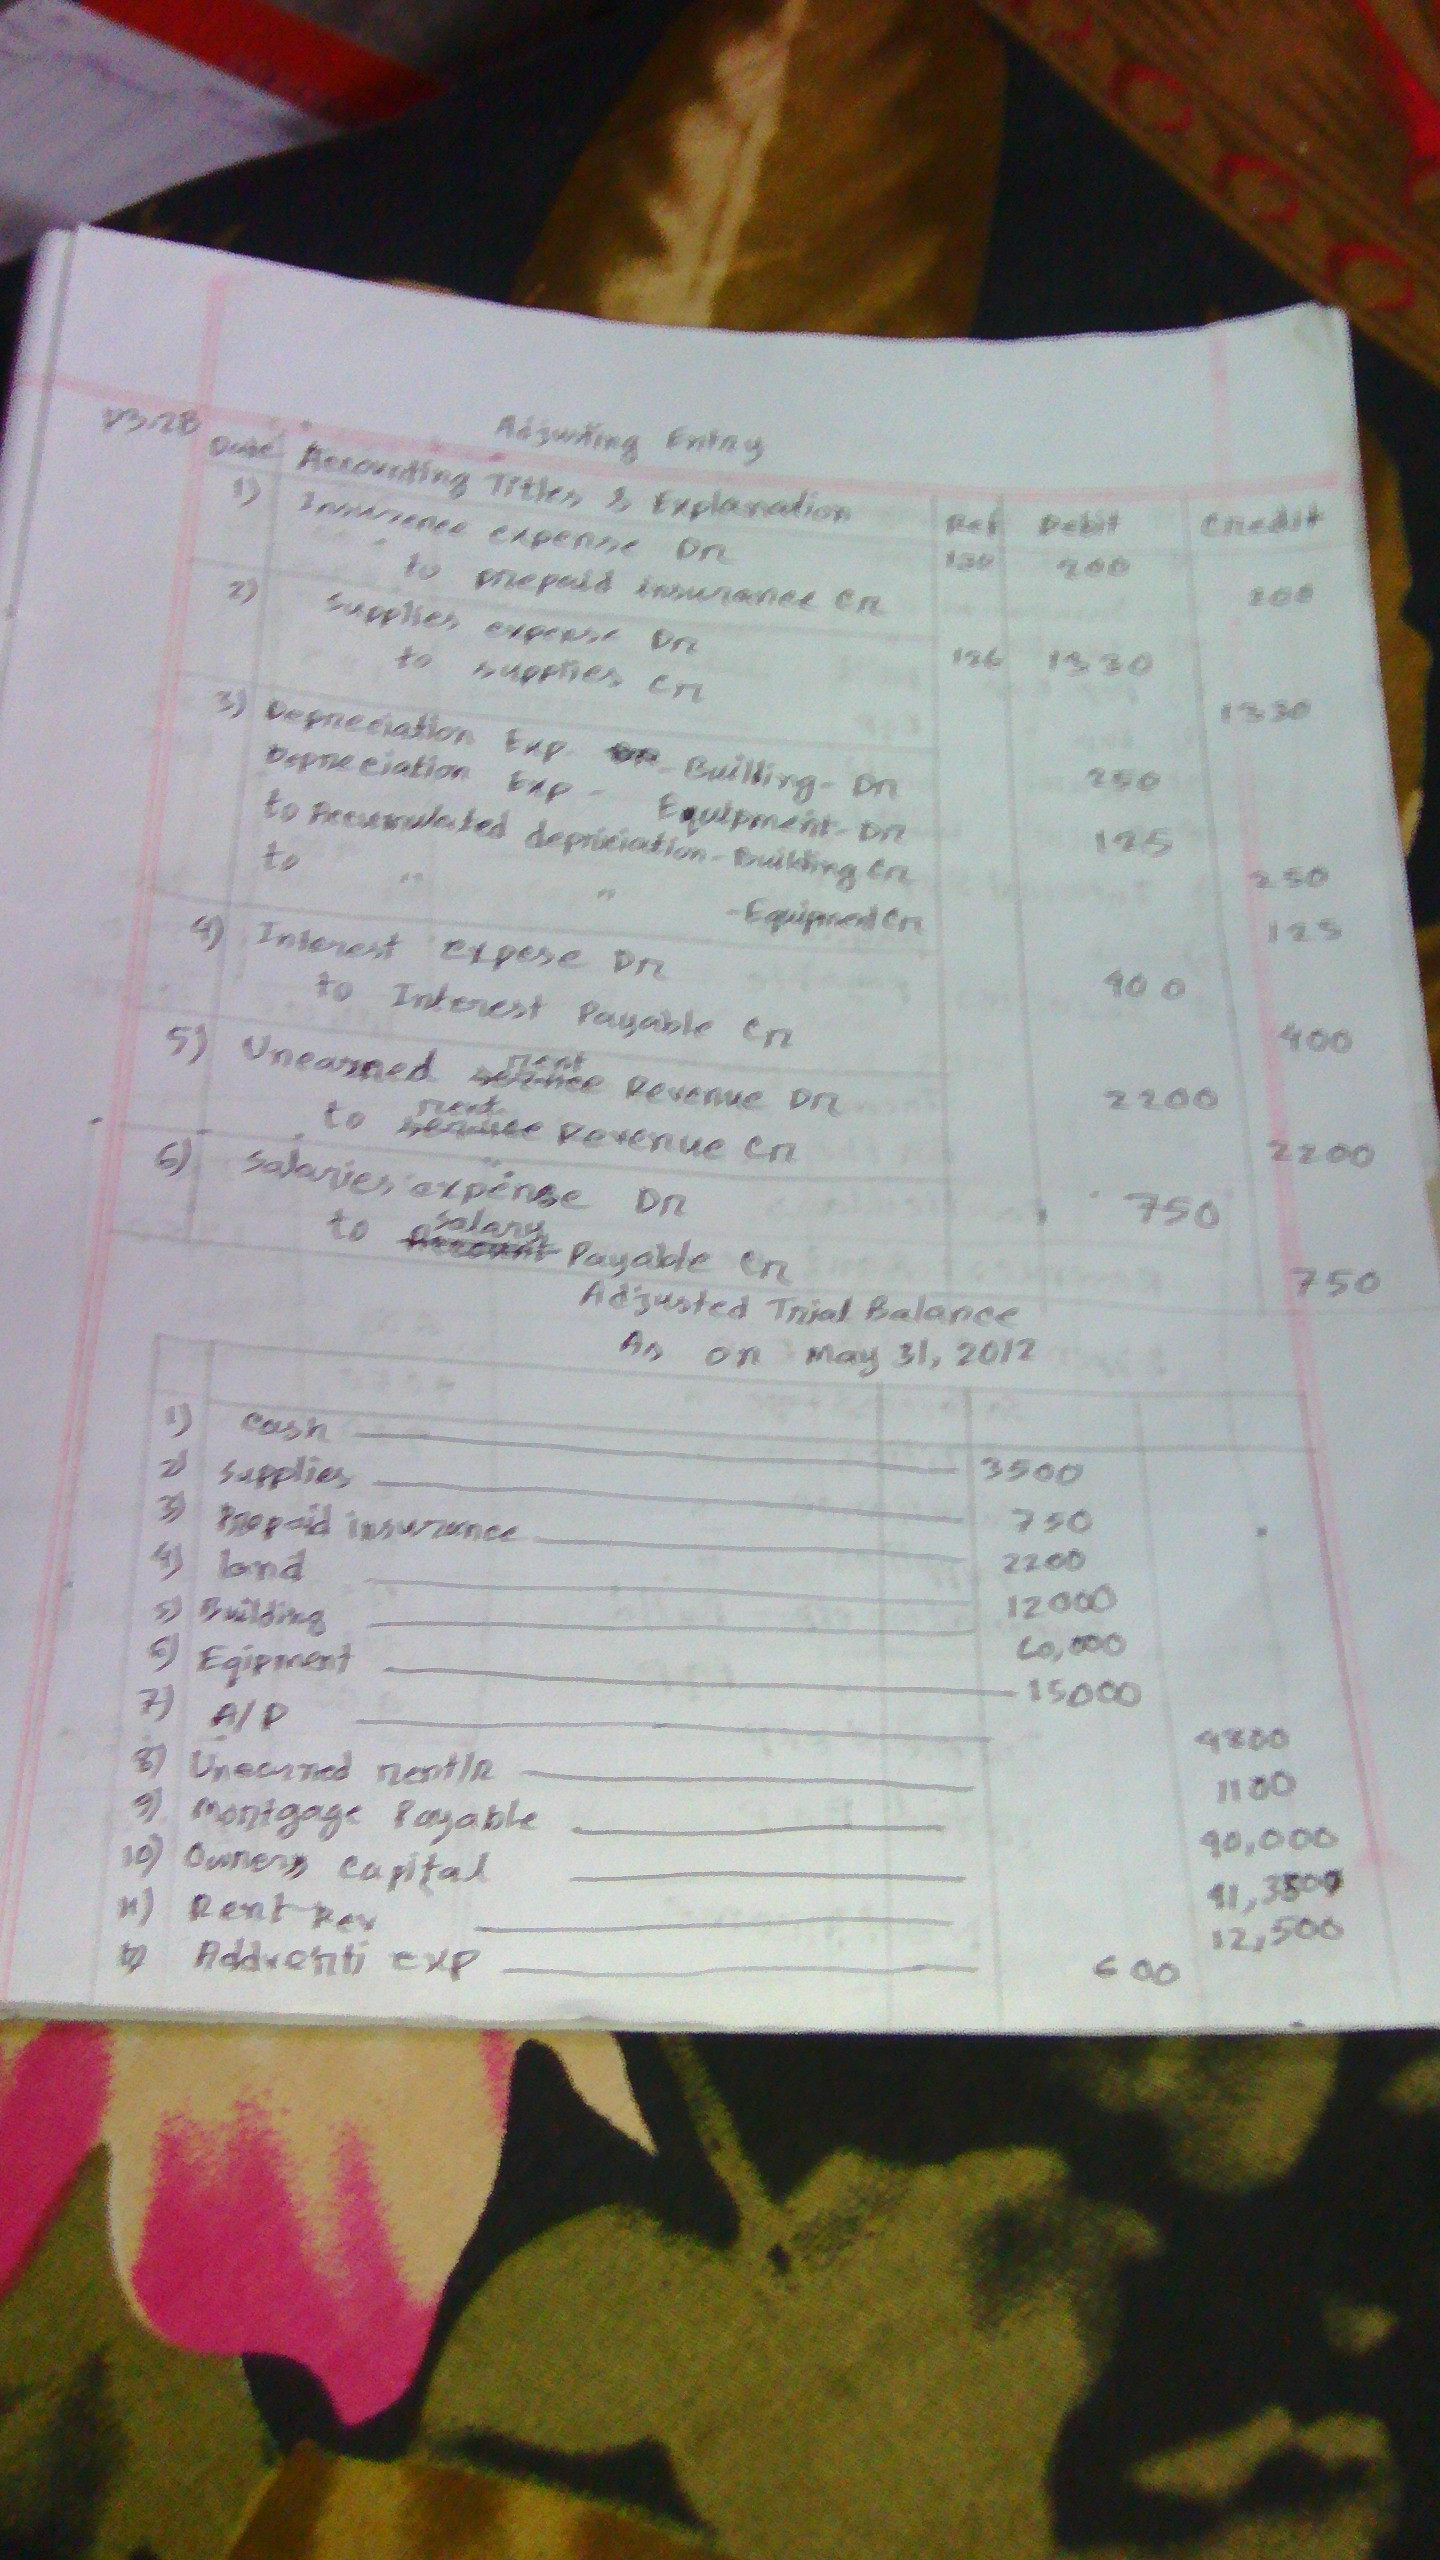 P3.2B
Adjusting Entry
Date Accounting Titles & Explanation Ref Debit Credit
1) Insurence expense Dr 130 200
to prepaid insurance Cr 200
2) Supplies expense Dr 126 1330
to supplies Cr 1330
3) Depreciation Exp. - Builling - Dr 250
Depreciation Exp - Equipment - Dr 125
to Accumulated depriciation - Building Cr 250
to " " - Equipment Cr 125
4) Interest expese Dr 400
to Interest Payable Cr 400
5) Unearned rent Revenue Dr 2200
to rent Revenue Cr 2200
6) Salaries expense Dr 750
to salary Payable Cr 750
Adjusted Trial Balance
As on May 31, 2012
1) Cash 3500
2) supplies 750
3) Prepaid insurance 2200
4) land 12000
5) Building 60,000
6) Eqipment 15000
7) A/P 4800
8) Unearned rent/R 1100
9) Mortgage Payable 40,000
10) Owners Capital
11) Rent Rev 12,500
12) exp 600